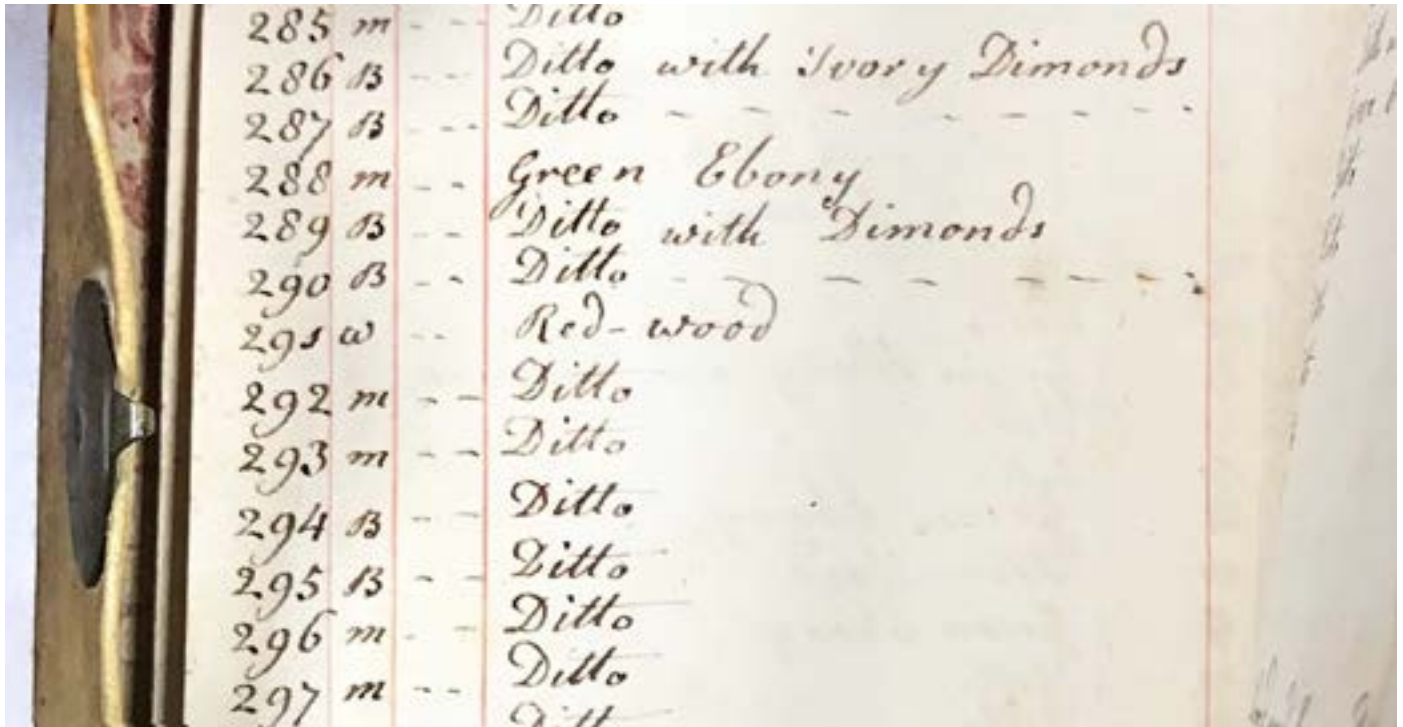 285 m -- Ditto
286 B --- Ditto with Ivory Dimonds
287 B --- Ditto - - - - - - -
288 m -- Green Ebony
289 B -- Ditto with Dimonds
290 B -- Ditto - - - - - - -
291 w -- Red-wood
292 m -- Ditto
293 m -- Ditto
294 B -- Ditto
295 B -- Ditto
296 m -- Ditto
297 m -- Ditto
Ditto